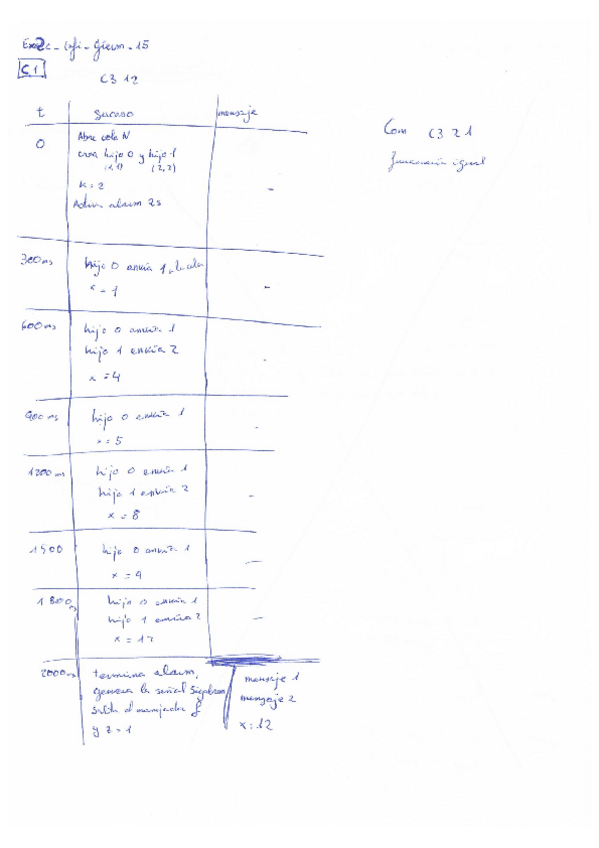 C1
C3 12
t suceso mensaje
0
Abre cola N
crea hijo 0 y hijo 1
(2,1) (2,2)
k = 2
alarm 2s
-
300 ms
hijo 0 envía 1
x = 1
-
600 ms
hijo 0 envía 1
hijo 1 envía 2
x = 4
-
900 ms
hijo 0 envía 1
x = 5
-
1200 ms
hijo 0 envía 1
hijo 1 envía 2
x = 8
-
1500
hijo 0 envía 1
x = 9
-
1800 ms
hijo 0 envía 1
hijo 1 envía 2
x = 12
-
2000 ms
termina alarm,
genera la señal
salta al manejador f
y z = 1
mensaje 1
mensaje 2
x = 12
Com C3 21
igual